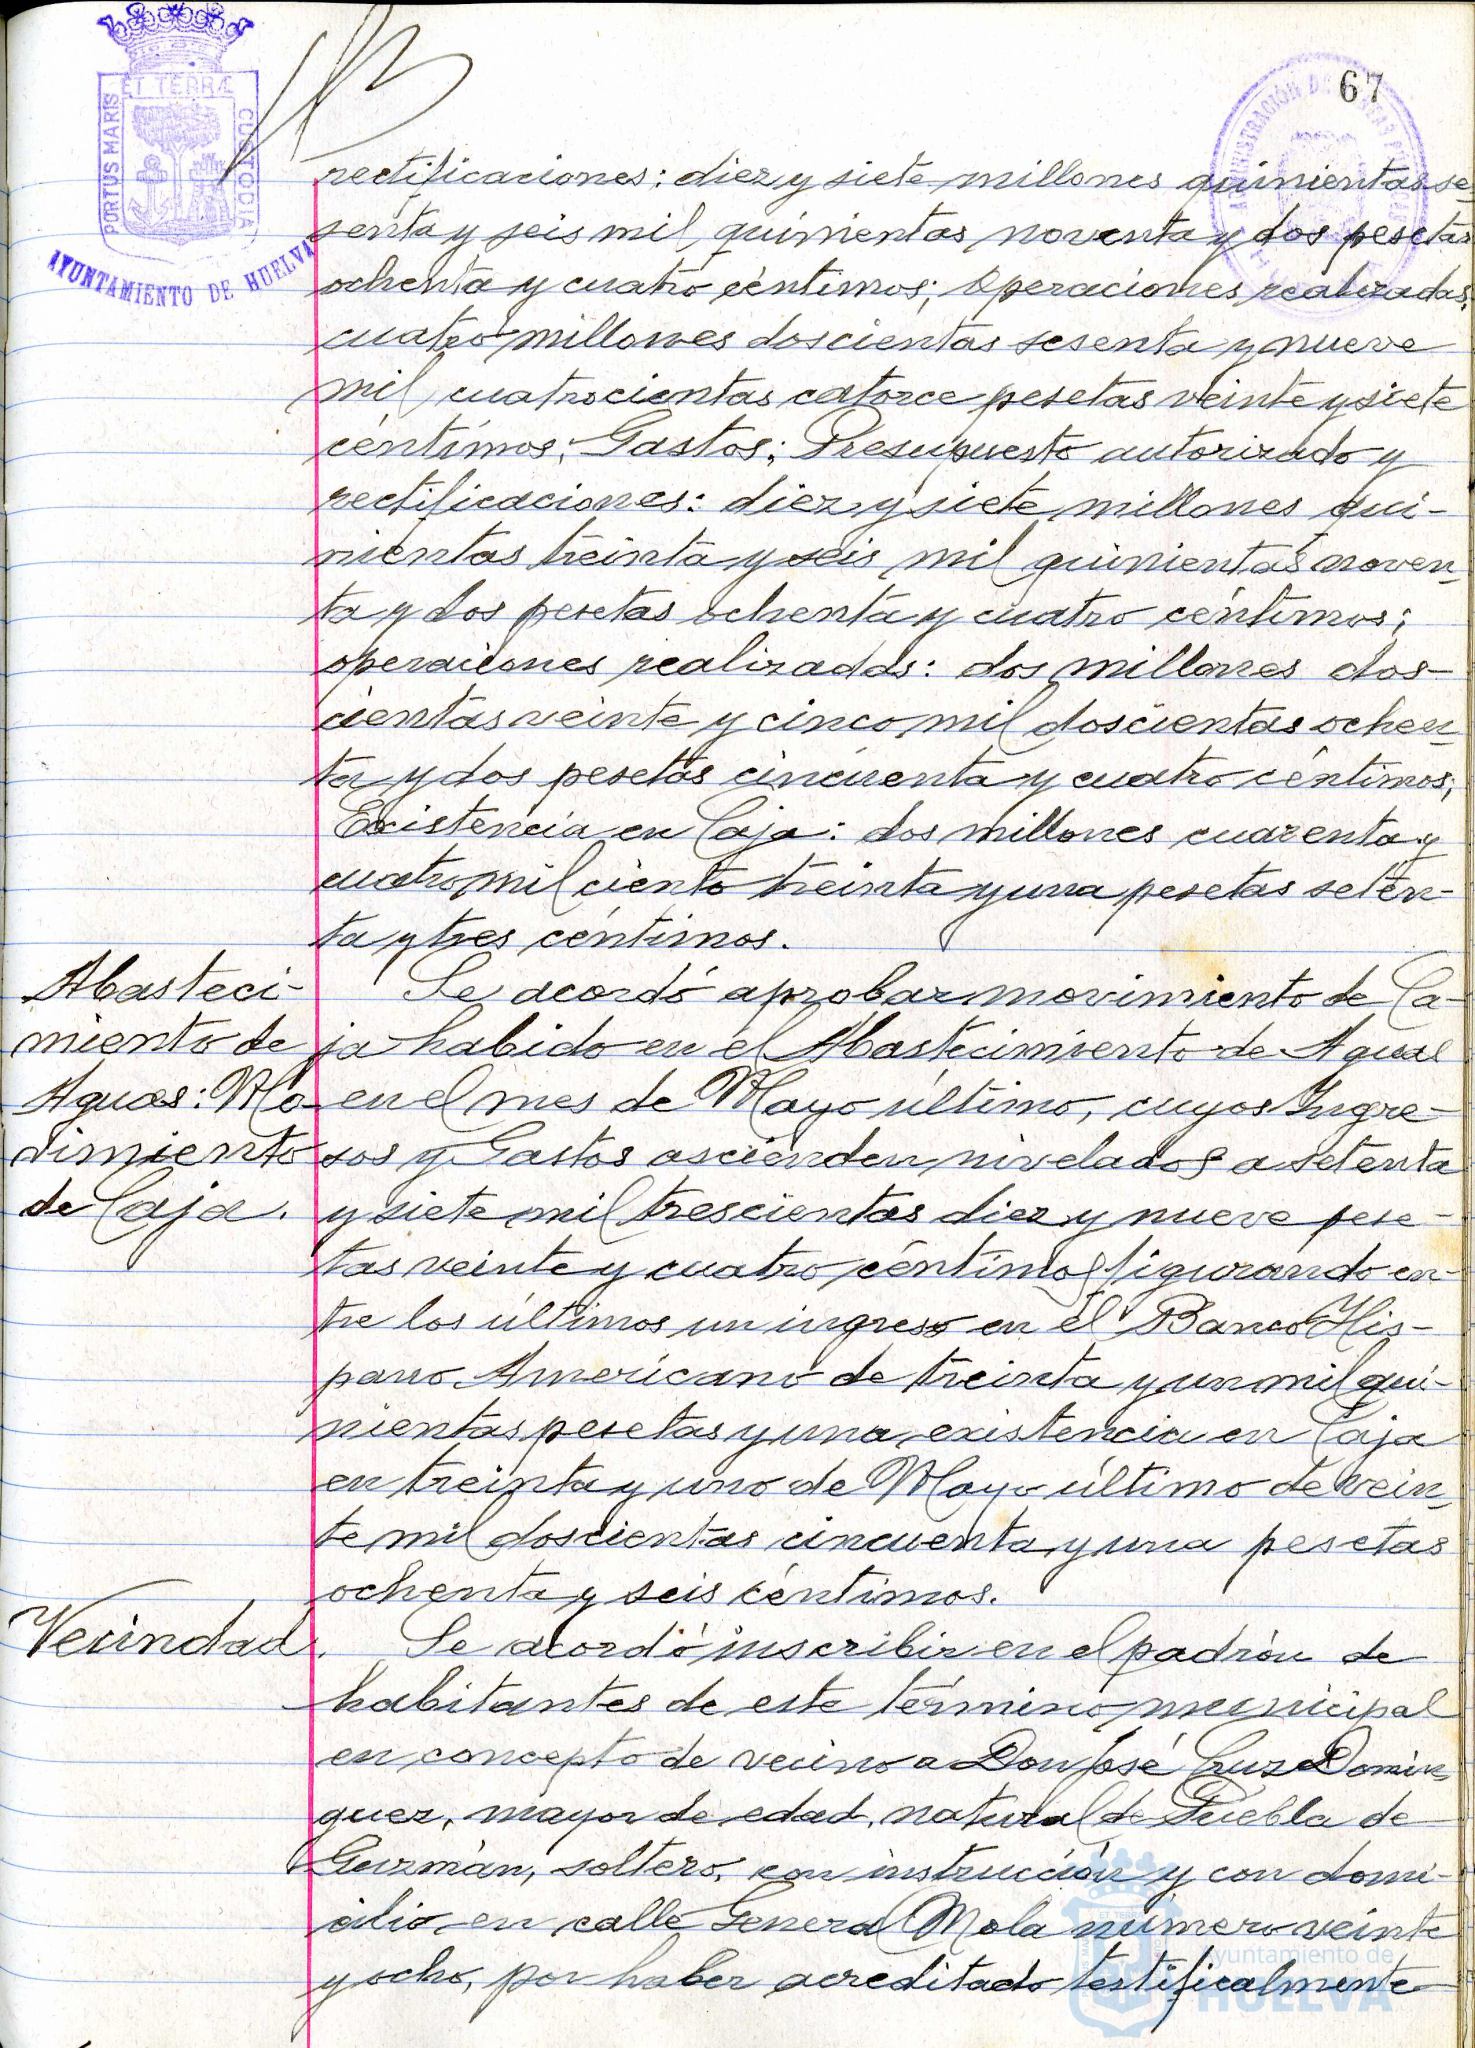 67
ET TERRÆ
PORTUS MARIS
CUSTODIA
AYUNTAMIENTO DE HUELVA
ADMINISTRACIÓN DE
rectificaciones: diez y siete millones quinientas se-
senta y seis mil quinientas noventa y dos pesetas
ochenta y cuatro céntimos; Operaciones realizadas,
cuatro millones doscientas sesenta y nueve
mil cuatrocientas catorce pesetas veinte y siete
céntimos; Gastos; Presupuesto autorizado y
rectificaciones: diez y siete millones qui-
nientas treinta y seis mil quinientas noven-
ta y dos pesetas ochenta y cuatro céntimos;
operaciones realizadas: dos millones dos-
cientas veinte y cinco mil doscientas ochen-
ta y dos pesetas cincuenta y cuatro céntimos;
Existencia en Caja: dos millones cuarenta y
cuatro mil ciento treinta y una pesetas seten-
ta y tres céntimos.
Abasteci-
miento de
Aguas: Mo-
vimiento
de Caja.
Se acordó aprobar movimiento de Ca-
ja habido en el Abastecimiento de Aguas
en el mes de Mayo último, cuyos Ingre-
sos y Gastos ascienden nivelados a setenta
y siete mil trescientas diez y nueve pese-
tas veinte y cuatro céntimos figurando en-
tre los últimos un ingreso en el Banco His-
pano Americano de treinta y un mil qui-
nientas pesetas y una existencia en Caja
en treinta y uno de Mayo último de vein-
te mil doscientas cincuenta y una pesetas
ochenta y seis céntimos.
Vecindad.
Se acordó inscribir en el padrón de
habitantes de este término municipal
en concepto de vecino a Don José Cruz Domin-
guez, mayor de edad, natural de Puebla de
Guzmán, soltero, con instrucción y con domi-
cilio en calle General Mola número veinte
y ocho, por haber acreditado testificalmente
Ayuntamiento de
HUELVA